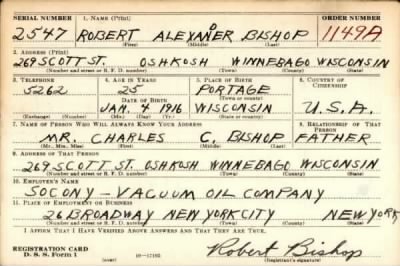 SERIAL NUMBER 1. NAME (Print) ORDER NUMBER
2547 ROBERT ALEXANER BISHOP 1149A
(First) (Middle) (Last)
2. ADDRESS (Print)
269 SCOTT ST. OSHKOSH WINNEBAGO WISCONSIN
(Number and street or R. F. D. number) (Town) (County) (State)
3. TELEPHONE 4. AGE IN YEARS 5. PLACE OF BIRTH 6. COUNTRY OF CITIZENSHIP
5262 25 PORTAGE
DATE OF BIRTH (Town or county)
JAN. 4 1916 WISCONSIN U.S.A.
(Exchange) (Number) (Mo.) (Day) (Yr.) (State or country)
7. NAME OF PERSON WHO WILL ALWAYS KNOW YOUR ADDRESS 8. RELATIONSHIP OF THAT PERSON
MR. CHARLES C. BISHOP FATHER
(Mr., Mrs., Miss) (First) (Middle) (Last)
9. ADDRESS OF THAT PERSON
269 SCOTT ST. OSHKOSH WINNEBAGO WISCONSIN
(Number and street or R. F. D. number) (Town) (County) (State)
10. EMPLOYER'S NAME
SOCONY-VACUUM OIL COMPANY
11. PLACE OF EMPLOYMENT OR BUSINESS
26 BROADWAY NEW YORK CITY NEW YORK
(Number and street or R. F. D. number) (Town) (County) (State)
I AFFIRM THAT I HAVE VERIFIED ABOVE ANSWERS AND THAT THEY ARE TRUE.
REGISTRATION CARD
D. S. S. Form 1 (over) 16-17105 Robert Bishop
(Registrant's signature)